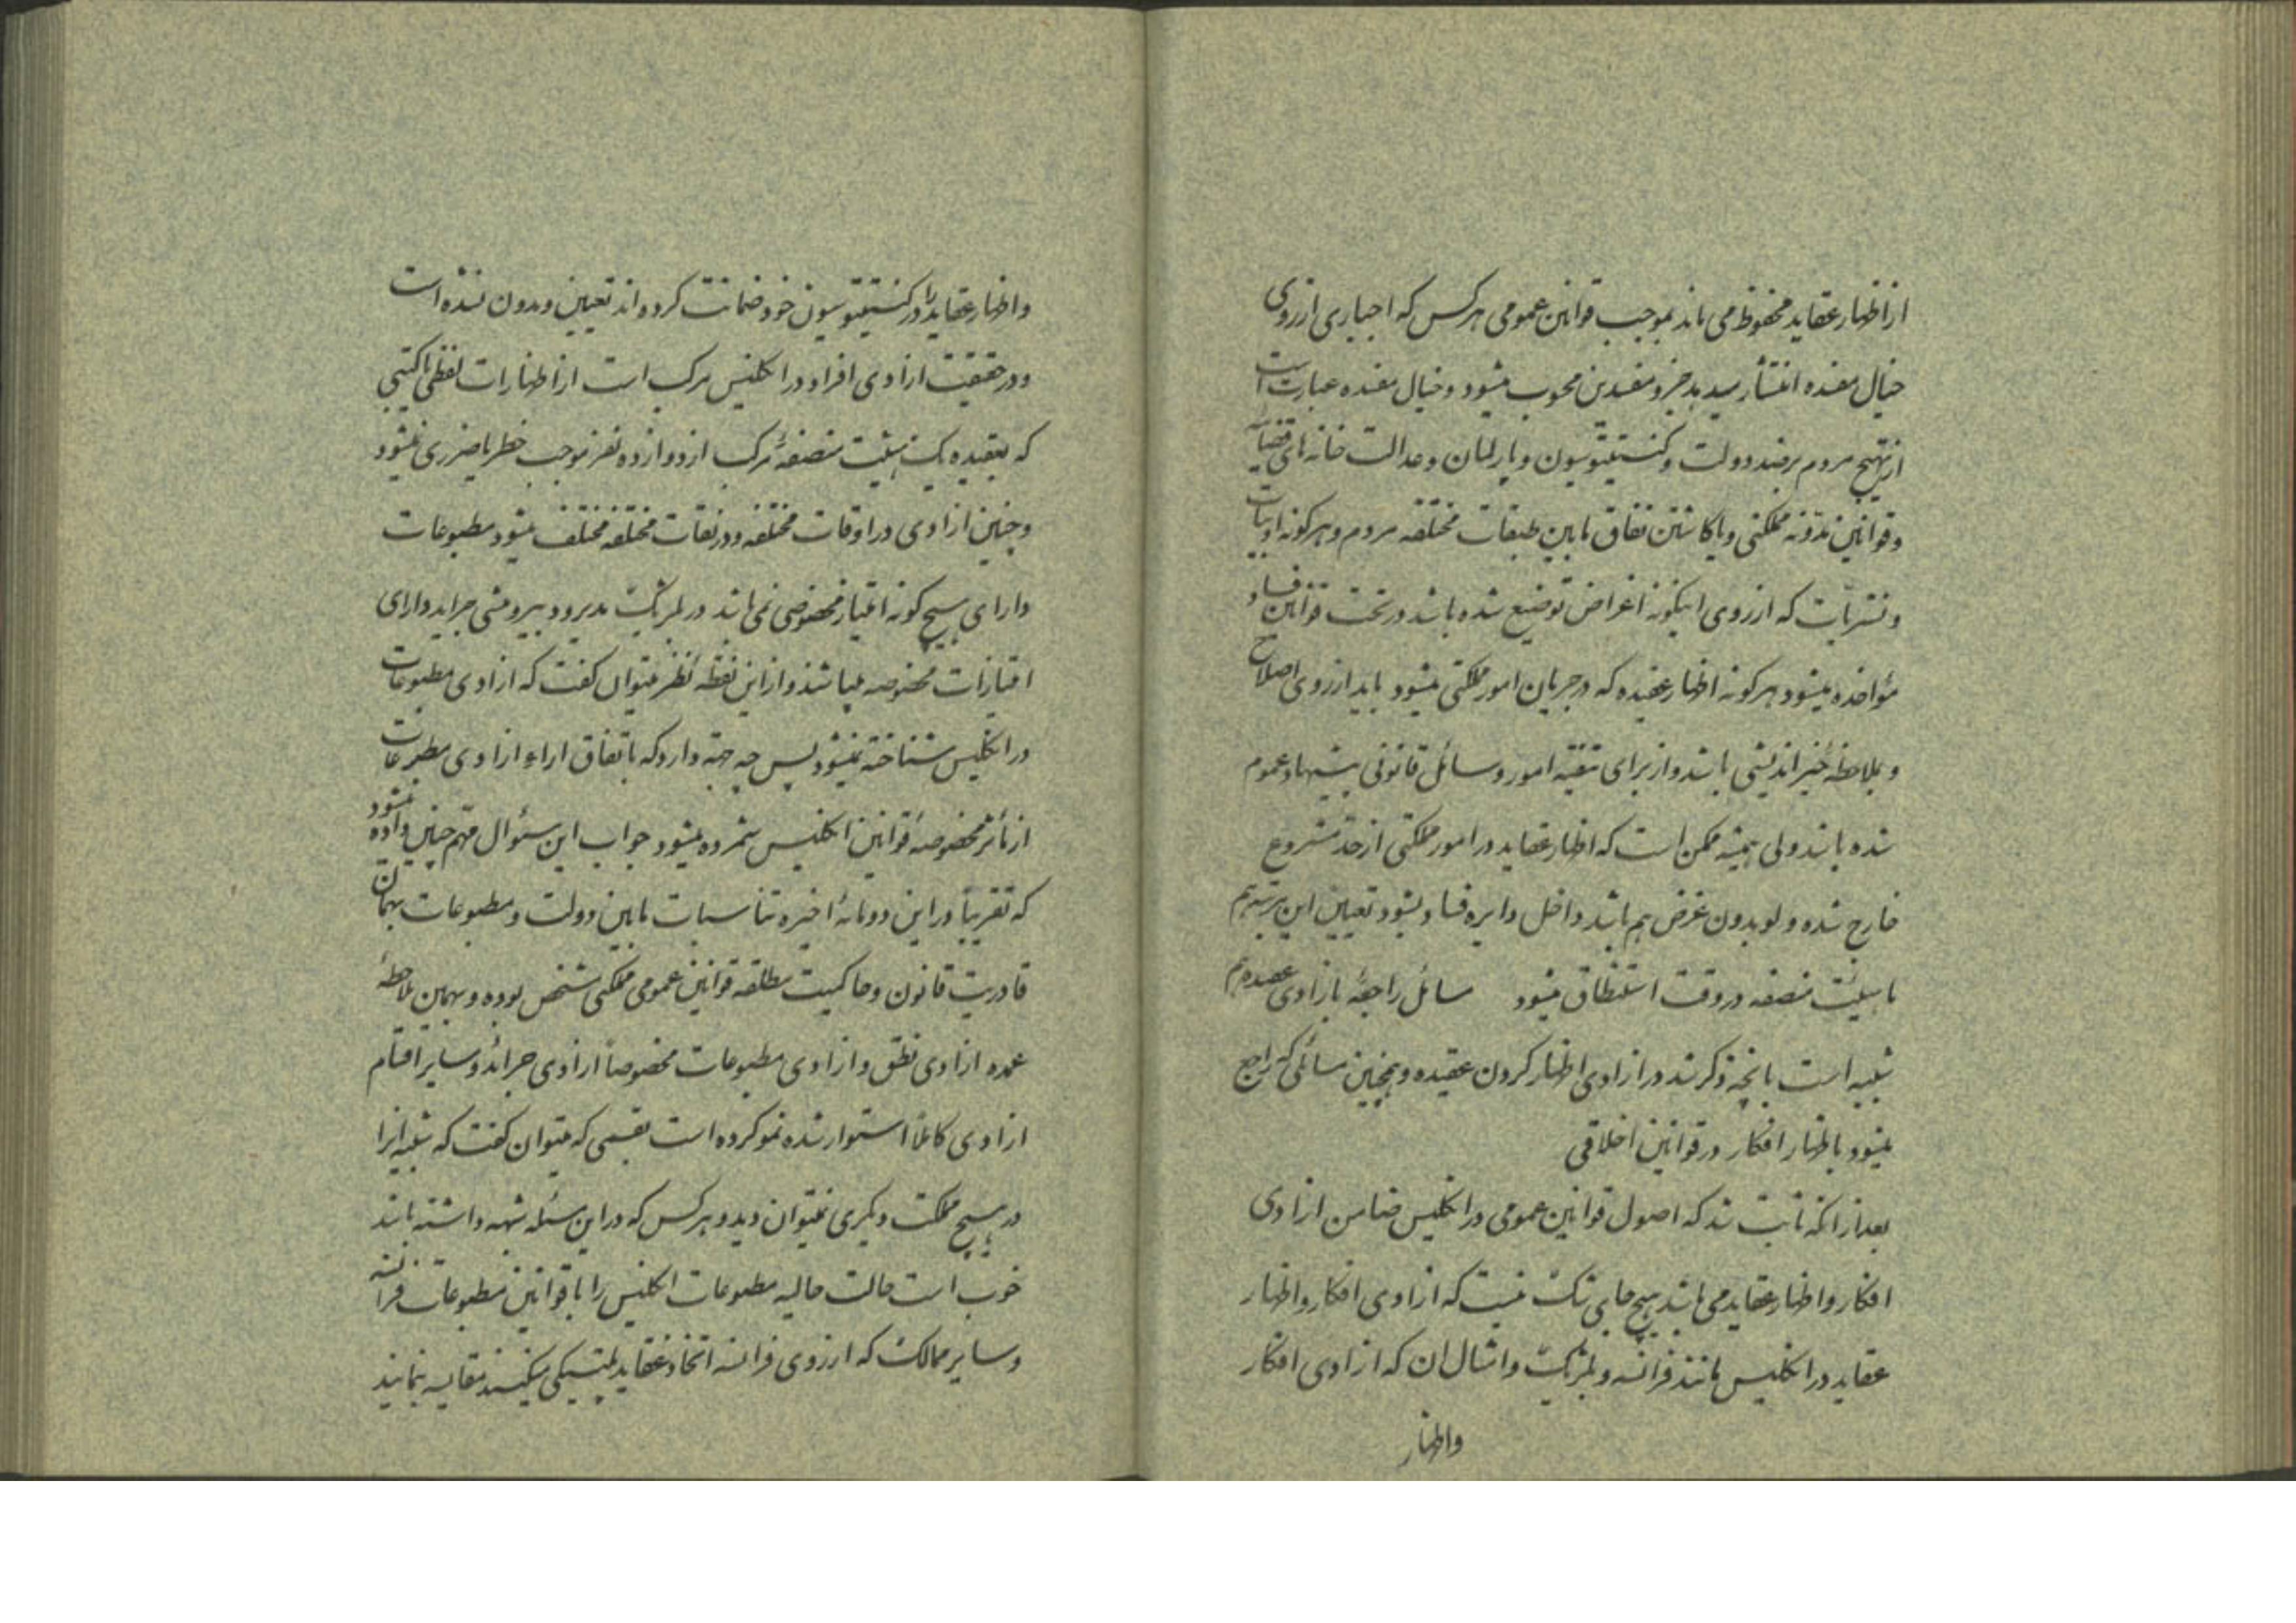 از اظهار عقاید محفوظ می ماند بموجب قوانین عمومی هر کس که اجباری از روی
خیال مفسده انتشار میدهد جزو مفسدین محسوب میشود و خیال مفسده عبارت است
از تهیج مردم بر ضد دولت و کنستیتوسیون و پارلمان و عدالت خانه های قضائیه
و قوانین مدونه مملکتی و یا کاشتن نفاق مابین طبقات مختلفه مردم و هر گونه ادبیات
و نشریات که از روی اینگونه اغراض توضیع شده باشد در تحت قوانین فساد
مؤاخذه میشود هر گونه اظهار عقیده که در جریان امور مملکتی میشود باید از روی اصلاح
و بملاحظه خیر اندیشی باشد و از برای تنقیه امور وسائل قانونی پیشنهاد عموم
شده باشد ولی همیشه ممکن است که اظهار عقاید در امور مملکتی از حد مشروع
خارج شده و لو بدون غرض هم باشد داخل دایره فساد بشود تعیین این مرتبه هم
با هیئت منصفه در وقت استنطاق میشود مسائل راجعه بازادی عقیده هم
شبیه است بانچه ذکر شد در ازادی اظهار کردن عقیده و همچنین مسائلی که راجع
میشود باظهار افکار در قوانین اخلاقی
بعد از انکه ثابت شد که اصول قوانین عمومی در انکلیس ضامن ازادی
افکار و اظهار عقاید می باشد هیچ جای شک نیست که ازادی افکار و اظهار
عقاید در انکلیس مانند فرانسه و بلژیک و امثال ان که ازادی افکار
و اظهار
و اظهار عقاید را در کنستیتوسیون خود ضمانت کرده اند تعیین و مدون نشده است
و در حقیقت ازادی افراد در انکلیس مرکب است از اظهارات لفظی یا کتبی
که بعقیده یک هیئت منصفهٔ مرکب از دوازده نفر موجب خطر یا ضرری نمیشود
و چنین ازادی در اوقات مختلفه و در نقات مختلفه مختلف میشود مطبوعات
دارای هیچ گونه امتیاز مخصوصی نمی باشد در بلژیک مدیر و دبیر و منشی جراید دارای
امتیازات مخصوصه میباشند و از این نقطه نظر میتوان کفت که ازادی مطبوعات
در انکلیس شناخته نمیشود پس چه جهة دارد که باتفاق اراء ازادی مطبوعات
از مآثر مخصوصهٔ قوانین انکلیس شمرده میشود جواب این سئوال مهم چنین داده میشود
که تقریباً در این دو مائهٔ اخیره تناسبات مابین دولت و مطبوعات بهمان
قادریت قانون و حاکمیت مطلقه قوانین عمومی مملکتی مشخص بوده و بهمین ملاحظهٔ
عمده ازادی نطق و ازادی مطبوعات مخصوصاً ازادی جرائد و سایر اقسام
ازادی کاملاً استوار شده نمو کرده است بقسمی که میتوان کفت که شبیه انرا
در هیچ مملکت دیکری نمیتوان دید و هر کس که در این مسئله شبهه داشته باشد
خوب است حالت حالیه مطبوعات انکلیس را با قوانین مطبوعات فرانسه
و سایر ممالک که از روی فرانسه اتخاذ عقاید پلتیکی میکنند مقایسه نمایند